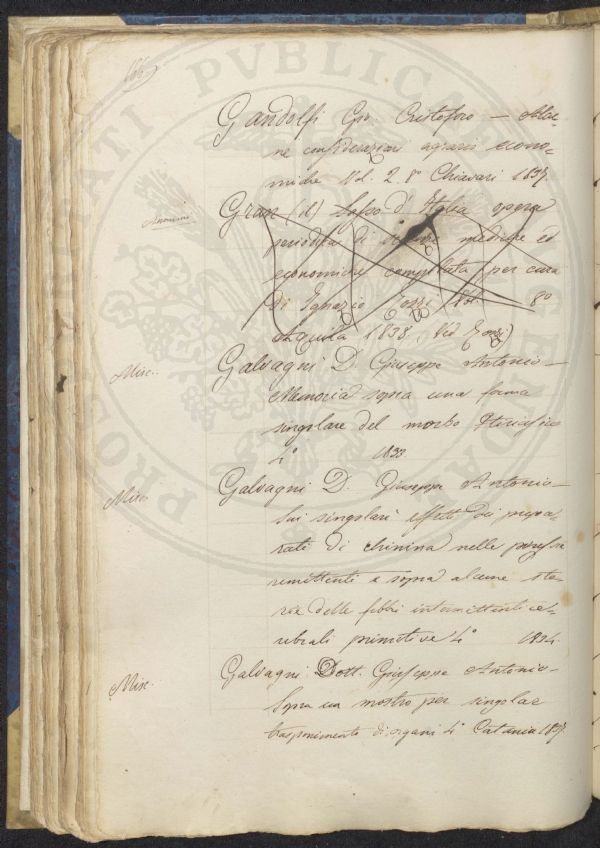 166
Gandolfi Gio. Cristoforo — Alcu-
ne considerazioni agrarie econo-
miche Vol. 2. 8° Chiavari 1837.
Anonimi
Gran (il) Sasso d'Italia opera
periodica di scienze mediche ed
economiche compilata per cura
di Ignazio Rozzi Vol. 8°
Aquila 1838. Ved Rozzi
Misc.
Galvagni D. Giuseppe Antonio —
Memoria sopra una forma
singolare del morbo
4° 1833
Misc.
Galvagni D. Giuseppe Antonio —
Sui singolari effetti dei prepa-
rati di chinina nelle
remittenti e sopra alcune sto-
rie delle febbri intermittenti ce-
rebrali primitive 4° 1834
Misc.
Galvagni Dott. Giuseppe Antonio —
Sopra un mostro per singolar
trasponimento di organi 4° Catania 1837.
PUBLICAE